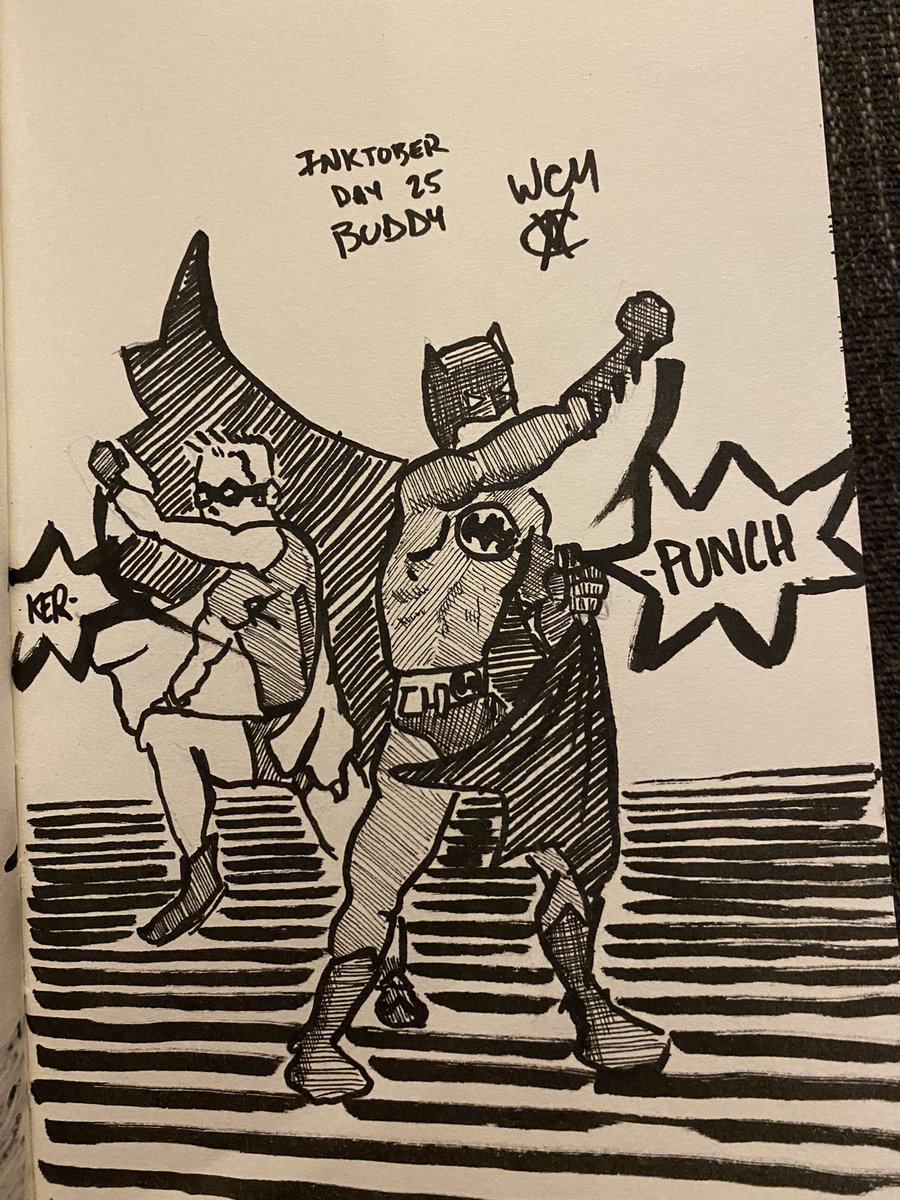 INKTOBER
DAY 25
BUDDY
WCM
KER-
-PUNCH